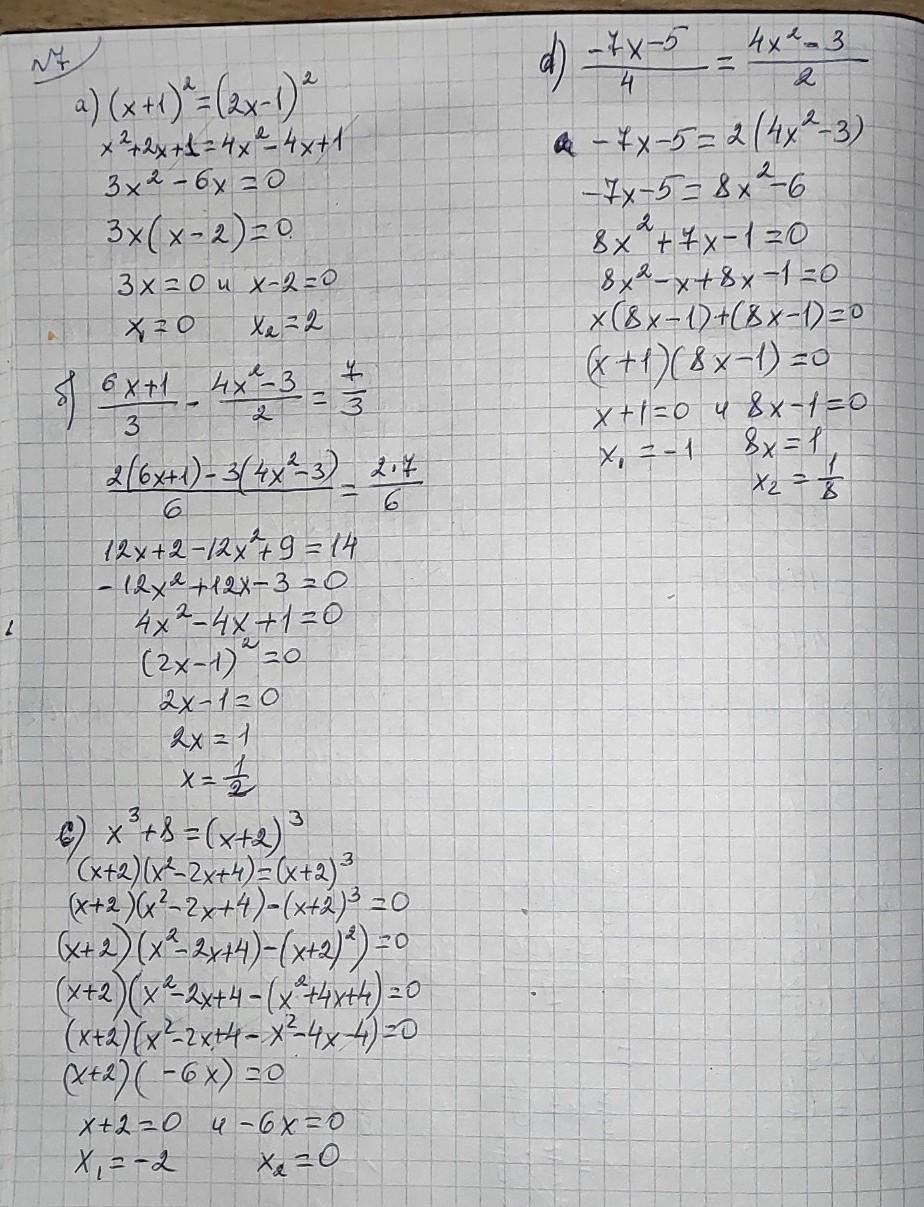 №7
а) (x+1)² = (2x-1)²
x²+2x+1=4x²-4x+1
3x²-6x=0
3x(x-2)=0
3x=0 и x-2=0
x₁=0 x₂=2
б) (6x+1)/3 - (4x²-3)/2 = 7/3
(2(6x+1)-3(4x²-3))/6 = (2·7)/6
12x+2-12x²+9=14
-12x²+12x-3=0
4x²-4x+1=0
(2x-1)²=0
2x-1=0
2x=1
x=1/2
c) x³+8=(x+2)³
(x+2)(x²-2x+4)=(x+2)³
(x+2)(x²-2x+4)-(x+2)³=0
(x+2)(x²-2x+4)-(x+2)²)=0
(x+2)(x²-2x+4-(x²+4x+4)=0
(x+2)(x²-2x+4-x²-4x-4)=0
(x+2)(-6x)=0
x+2=0 и -6x=0
x₁=-2 x₂=0
d) (-7x-5)/4 = (4x²-3)/2
-7x-5=2(4x²-3)
-7x-5=8x²-6
8x²+7x-1=0
8x²-x+8x-1=0
x(8x-1)+(8x-1)=0
(x+1)(8x-1)=0
x+1=0 и 8x-1=0
x₁=-1 8x=1
x₂=1/8